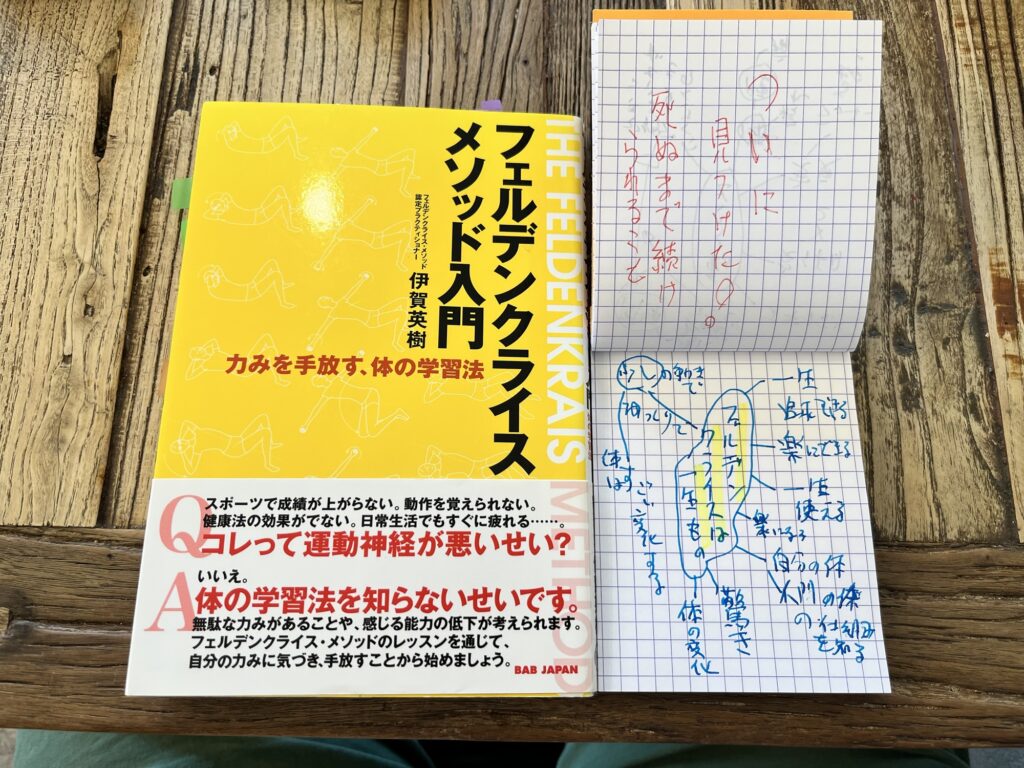 THE FELDENKRAIS METHOD
フェルデンクライス
メソッド入門
フェルデンクライス・メソッド
認定プラクティショナー
伊賀英樹
力みを手放す、体の学習法
Q
スポーツで成績が上がらない。動作を覚えられない。
健康法の効果がでない。日常生活でもすぐに疲れる……。
コレって運動神経が悪いせい?
A
いいえ。
体の学習法を知らないせいです。
無駄な力みがあることや、感じる能力の低下が考えられます。
フェルデンクライス・メソッドのレッスンを通じて、
自分の力みに気づき、手放すことから始めましょう。
BAB JAPAN
ついに
見つけた!。
死ぬまで続け
られること
フェルデン
クライスは
一生もの
一生
追求できる
楽にできる
一生
使える
楽になる
自分の体
人間の
の体
仕組み
を知る
驚き
体の変化
少しの動き
ゆっくりで